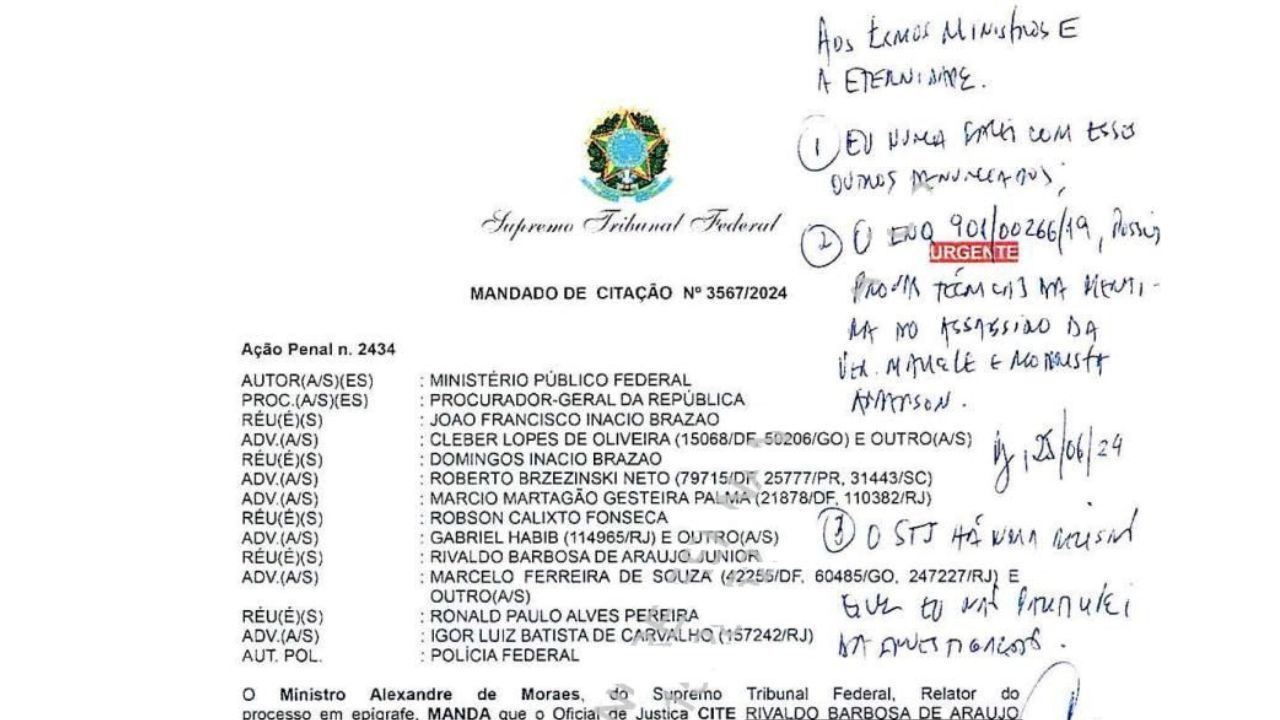 AOS EXMOS MINISTROS E
A ETERNIDADE.
1 EU NUNCA FALEI COM ESSES
OUTROS DENUNCIADOS;
2 O INQ 901/00266/19, POSSUI
PROVA TÉCNICAS DA MENTI-
RA DO ASSASSINO DA
VER. MARIELLE E MOTORISTA
ANDERSON.
25/06/24
3 O STJ HÁ UMA DECISÃO
QUE EU NÃO PREJUDIQUEI
AS INVESTIGAÇÕES.
Supremo Tribunal Federal
URGENTE
MANDADO DE CITAÇÃO Nº 3567/2024
Ação Penal n. 2434
AUTOR(A/S)(ES) : MINISTÉRIO PÚBLICO FEDERAL
PROC.(A/S)(ES) : PROCURADOR-GERAL DA REPÚBLICA
RÉU(É)(S) : JOAO FRANCISCO INACIO BRAZAO
ADV.(A/S) : CLEBER LOPES DE OLIVEIRA (15068/DF, 50206/GO) E OUTRO(A/S)
RÉU(É)(S) : DOMINGOS INACIO BRAZAO
ADV.(A/S) : ROBERTO BRZEZINSKI NETO (79715/DF, 25777/PR, 31443/SC)
ADV.(A/S) : MARCIO MARTAGÃO GESTEIRA PALMA (21878/DF, 110382/RJ)
RÉU(É)(S) : ROBSON CALIXTO FONSECA
ADV.(A/S) : GABRIEL HABIB (114965/RJ) E OUTRO(A/S)
RÉU(É)(S) : RIVALDO BARBOSA DE ARAUJO JUNIOR
ADV.(A/S) : MARCELO FERREIRA DE SOUZA (42255/DF, 60485/GO, 247227/RJ) E
OUTRO(A/S)
RÉU(É)(S) : RONALD PAULO ALVES PEREIRA
ADV.(A/S) : IGOR LUIZ BATISTA DE CARVALHO (157242/RJ)
AUT. POL. : POLÍCIA FEDERAL
O Ministro Alexandre de Moraes, do Supremo Tribunal Federal, Relator do
processo em epígrafe, MANDA que o Oficial de Justiça CITE RIVALDO BARBOSA DE ARAUJO